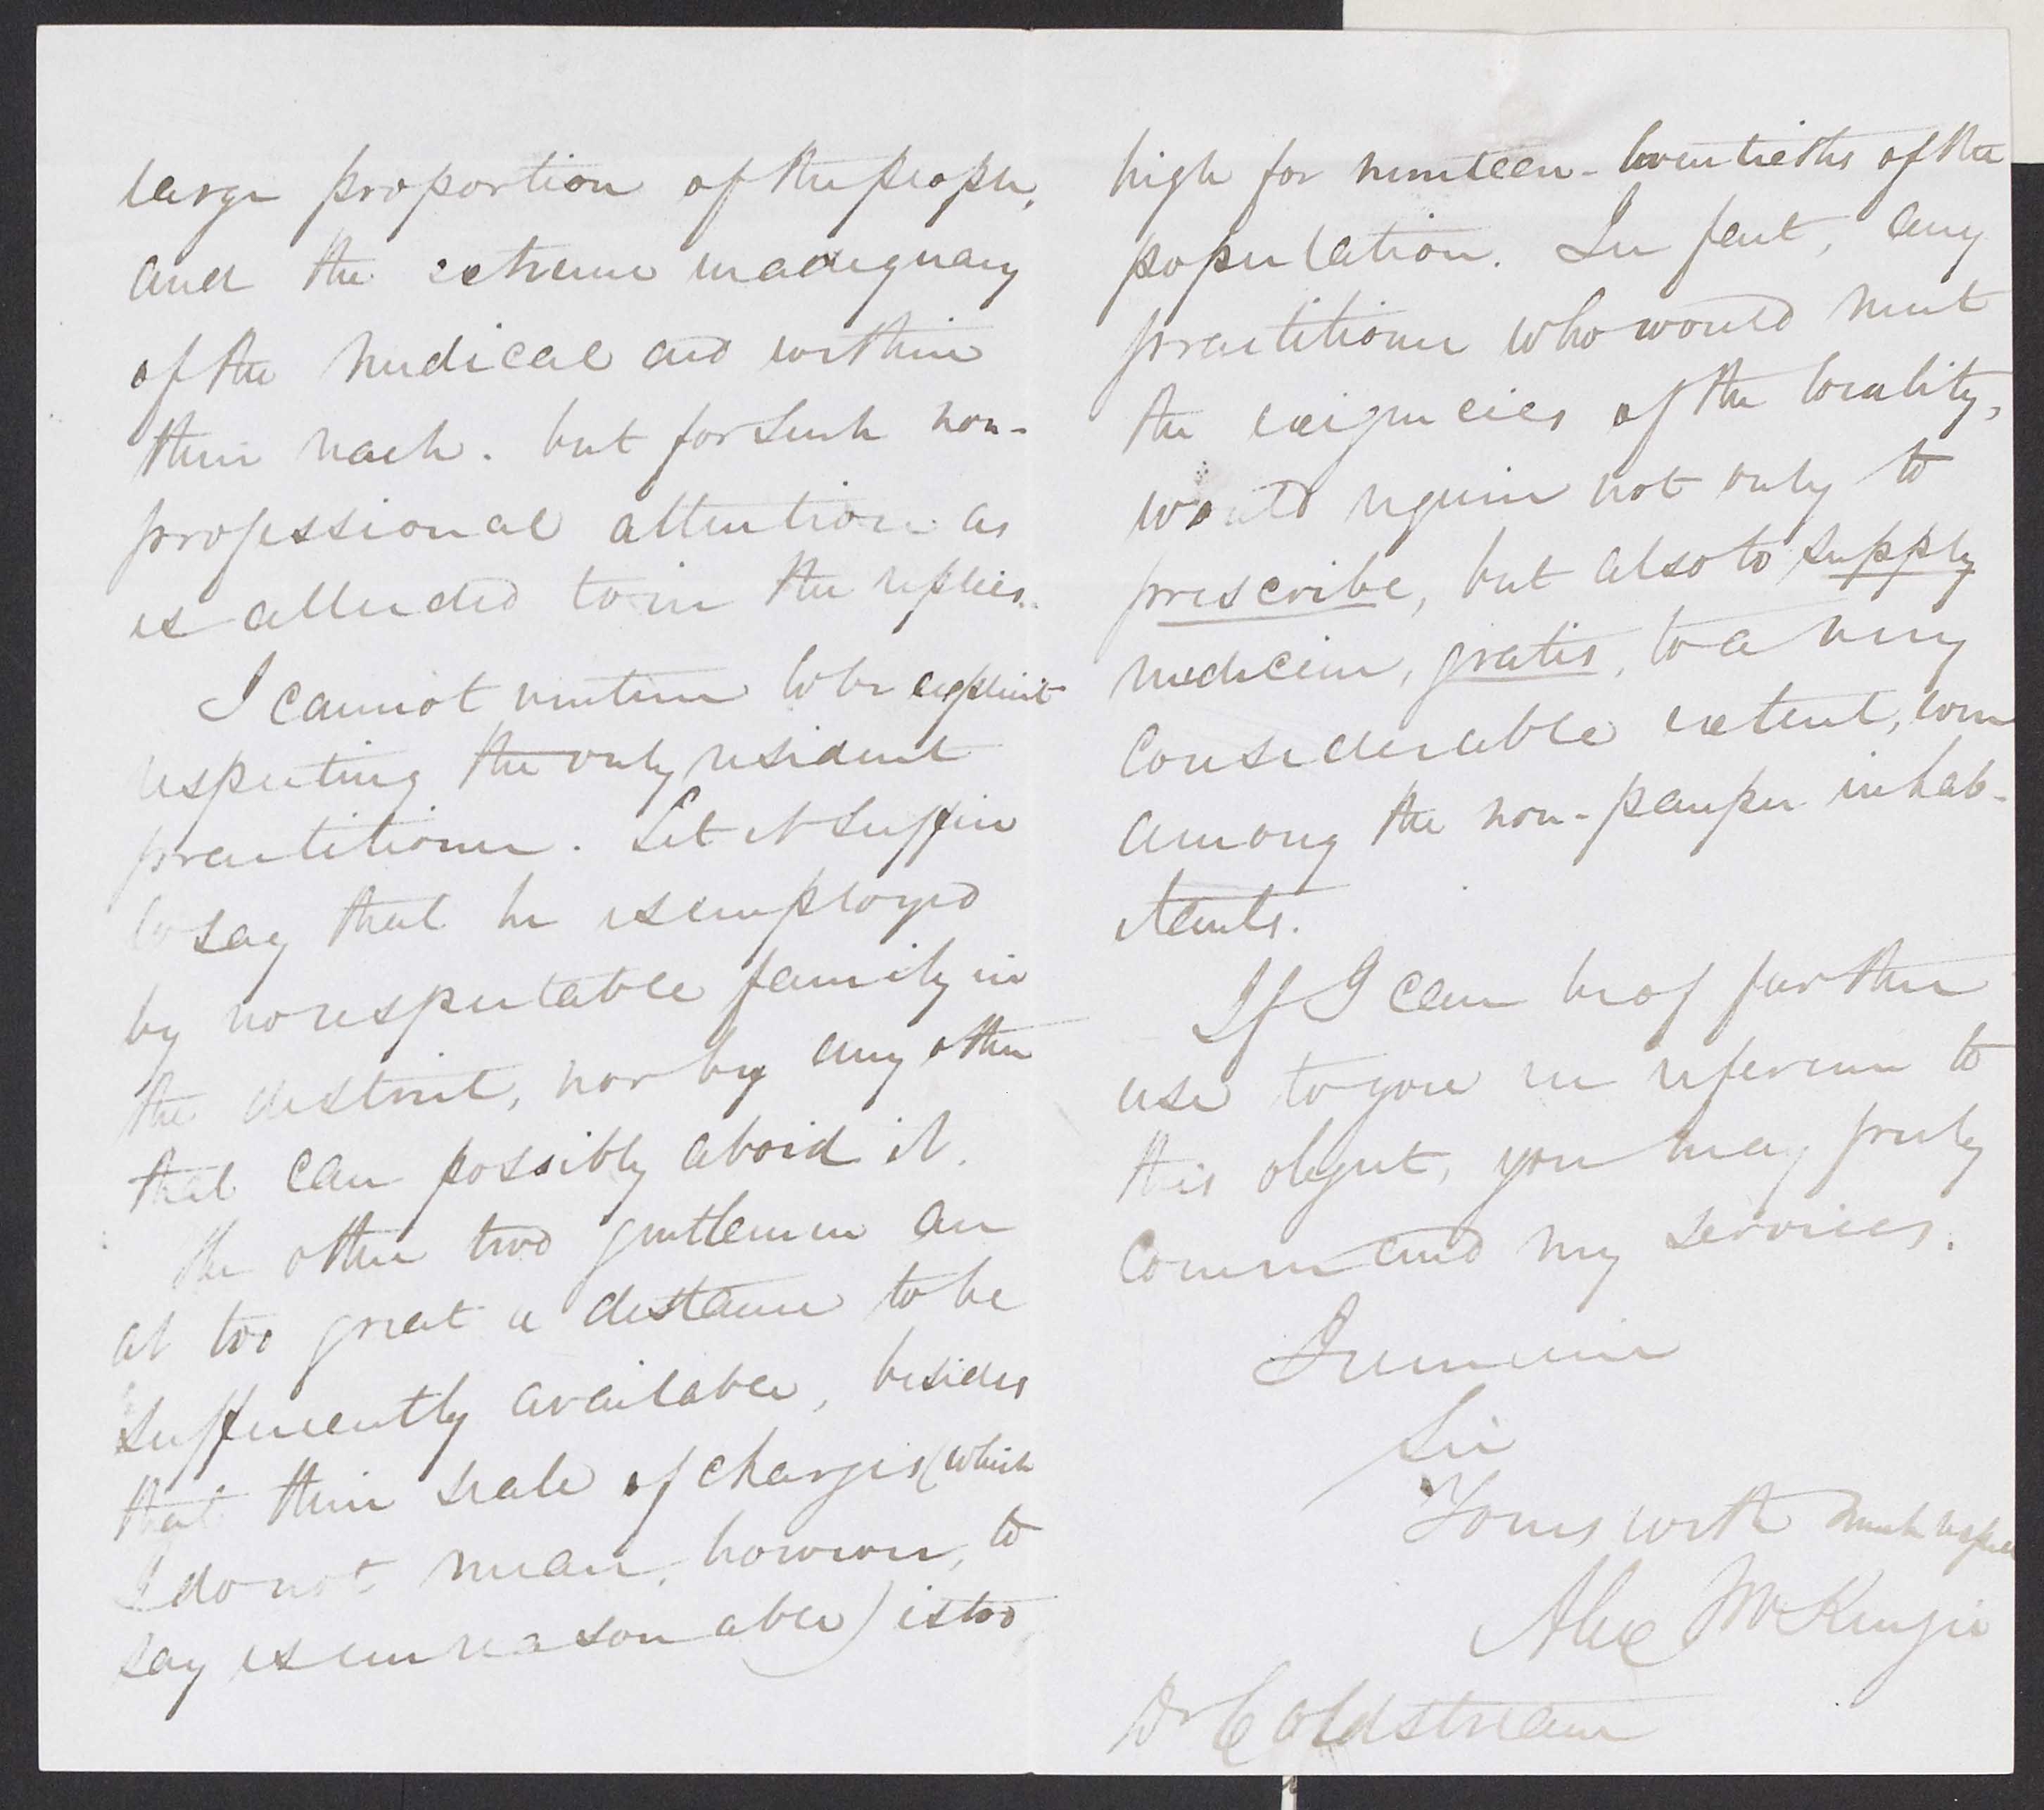 large proportion of the people,
and the extreme inadequacy
of the medical aid within
their reach. but for such non-
professional attention as
is alluded to in the replies.
I cannot venture to be explicit
respecting the only resident
practitioner. Let it suffice
to say that he is employed
by no respectable family in
the district, nor by any other
that can possibly avoid it.
The other two gentlemen are
at too great a distance to be
sufficiently available, besides
that their scale of charges (which
I do not mean, however, to
say is unreasonable) is too
high for nineteen-twentieths of the
population. In fact, any
practitioner who would meet
the exigencies of the locality,
would require not only to
prescribe, but also to supply
medicine, gratis, to a very
considerable extent, even
among the non-pauper inhab-
itants.
If I can be of further
use to you in reference to
this object, you may freely
command my services.
I remain
Sir
Yours with much respect
Alex McKenzie
Dr Coldstream